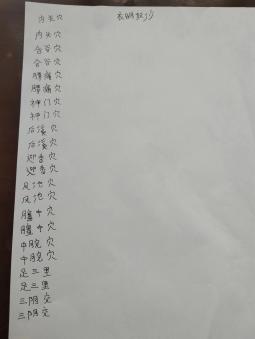 内关穴
内关穴
合谷穴
合谷穴
腰痛穴
腰痛穴
神门穴
神门穴
后溪穴
后溪穴
迎香穴
迎香穴
风池穴
风池穴
膻中穴
膻中穴
中脘穴
中脘穴
足三里
足三里
三阴交
三阴交